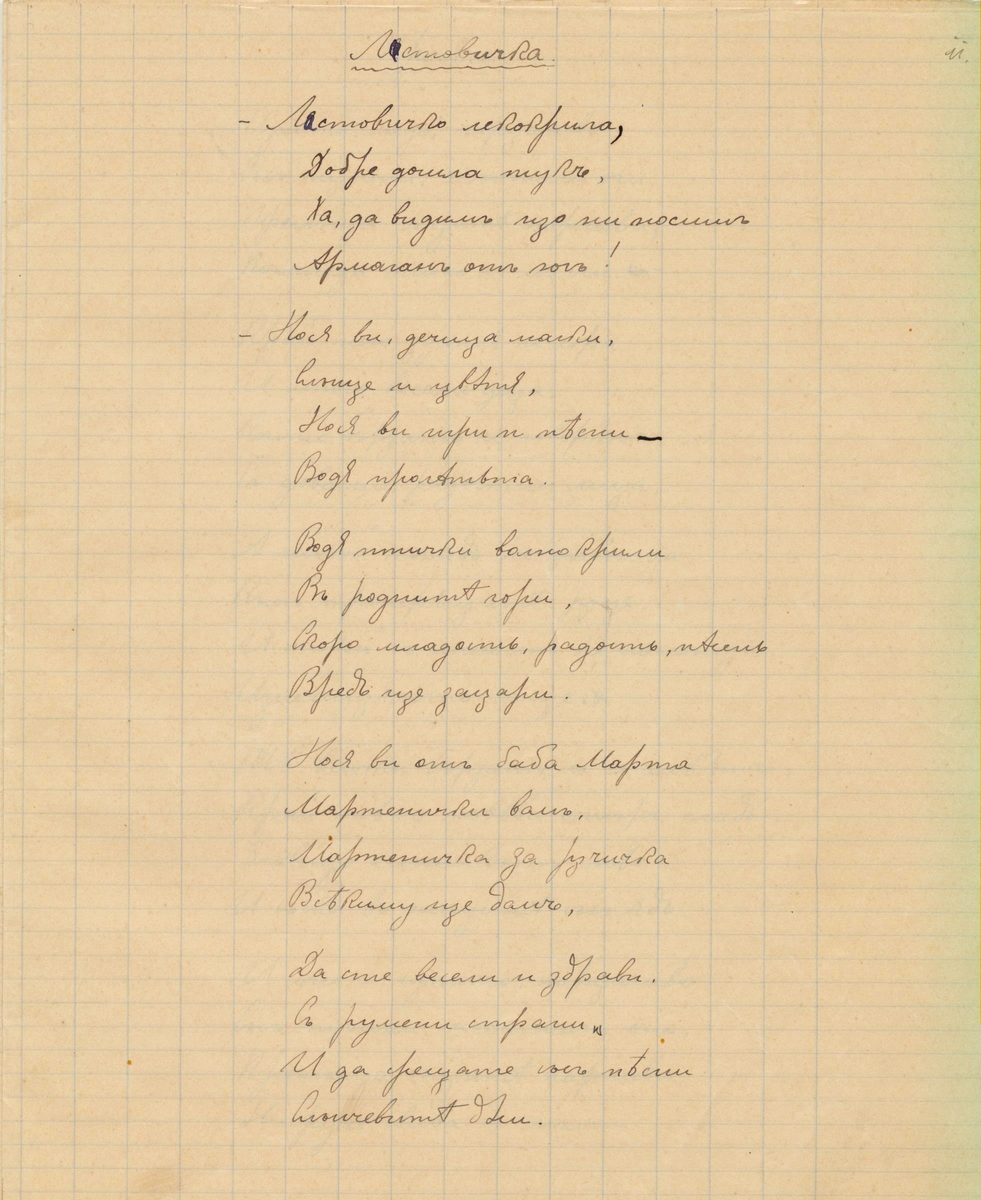 Лѣстовичка.
11.
– Лѣстовичко лекокрила,
Добре дошла тукъ,
Ха, да видимъ що ни носишъ
Армаганъ отъ югъ!
– Нося ви, дечица малки,
Слънце и цвѣтя,
Нося ви игри и пѣсни –
Водя пролѣтьта.
Водя птички волнокрили
Въ роднитѣ гори,
Скоро младость, радость, пѣсень
Вредъ ще зацари.
Нося ви отъ баба Марта
Мартенички вамъ,
Мартеничка за рѫчичка
Всѣкиму ще дамъ,
Да сте весели и здрави.
Съ румени страни,
И да срещате съсъ пѣсни
Слънчевитѣ дни.